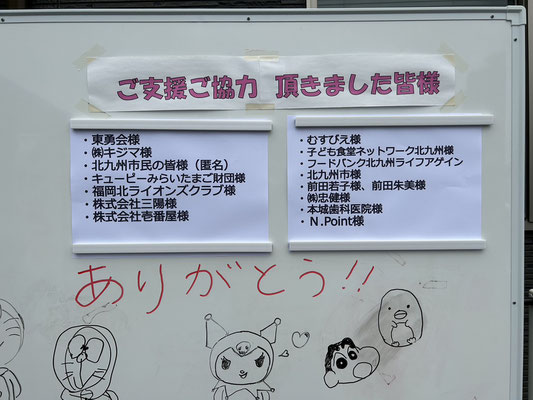 ご支援ご協力 頂きました皆様
・東勇会様
・㈱キジマ様
・北九州市民の皆様（匿名）
・キューピーみらいたまご財団様
・福岡北ライオンズクラブ様
・株式会社三陽様
・株式会社壱番屋様
・むすびえ様
・子ども食堂ネットワーク北九州様
・フードバンク北九州ライフアゲイン
・北九州市様
・前田若子様、前田朱美様
・㈱忠健様
・本城歯科医院様
・Ｎ.Point様
ありがとう!!